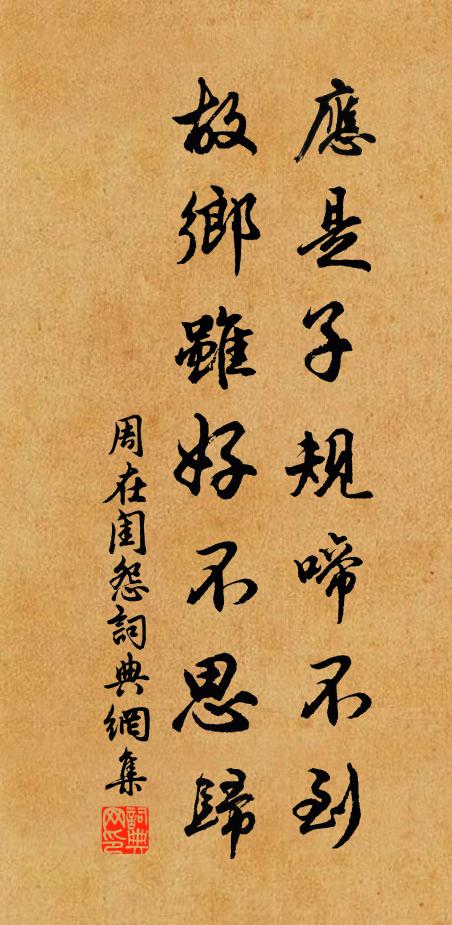 應是子規啼不到
故鄉雖好不思歸
周在閨怨詞典網集
詞典网印